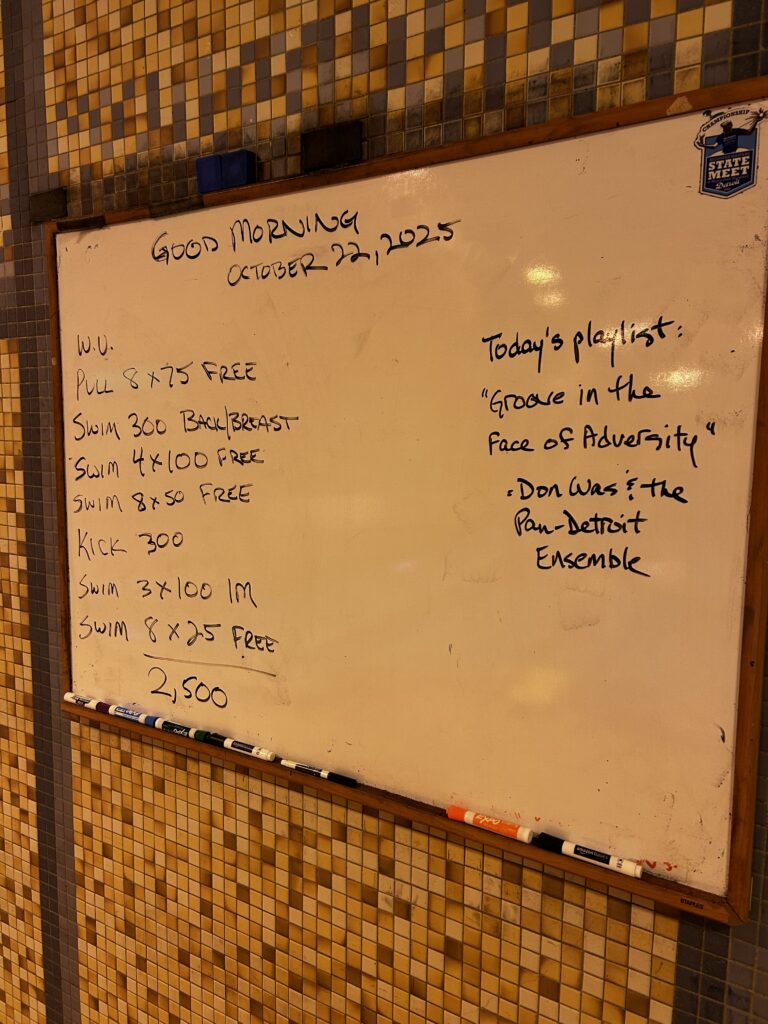 GOOD MORNING
OCTOBER 22, 2025
W.U.
PULL 8x75 FREE
SWIM 300 BACK/BREAST
SWIM 4x100 FREE
SWIM 8x50 FREE
KICK 300
SWIM 3x100 IM
SWIM 8x25 FREE
2,500
Today's playlist:
"Groove in the
Face of Adversity"
- Don Was & the
Pan-Detroit
Ensemble
CHAMPIONSHIP
STATE
MEET
Detroit
expo
STAPLES